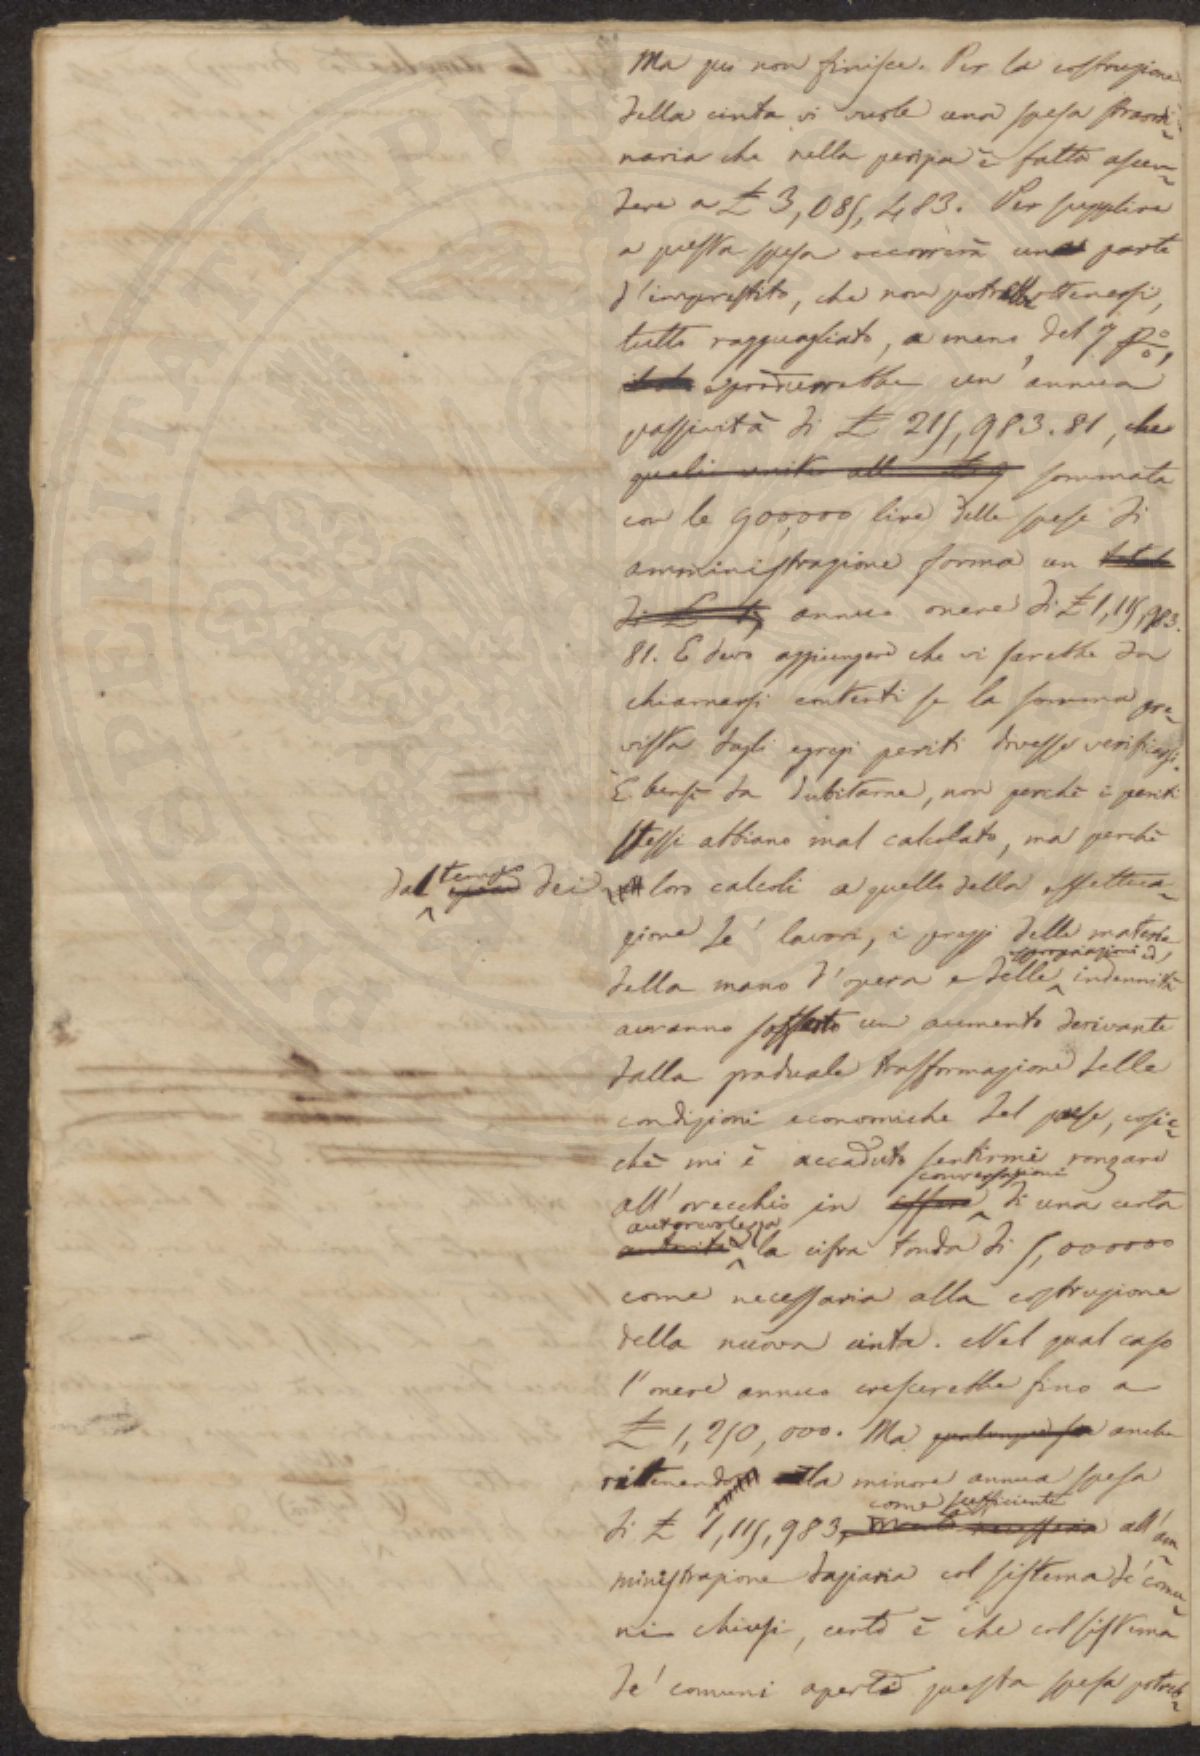 Ma qui non finisce. Per la costruzione
della cinta vi vuole una spesa straordi-
naria che nella perizia è fatta ascen-
dere a £ 3,085,483. Per supplire
a questa spesa occorrerà una parte
d'imprestito, che non potrebbe ottenersi,
tutto ragguagliato, a meno, del 7 p%,
e produrrebbe un'annua
passività di £ 215,983.81, che
quali unite alle sommata
con le 900,000 lire delle spese di
amministrazione forma un totale
di £ 1, annuo onere di £ 1,115,983.
81. E devo aggiungere che vi sarebbe da
chiamarsi contenti se la somma pre-
vista dagli egregi periti dovesse verificarsi.
È bensì da dubitarne, non perchè i periti
stessi abbiano mal calcolato, ma perchè
dal tempo dei loro calcoli a quello della effettua-
zione de' lavori, i prezzi delle materie
espropriazioni ed
della mano d'opera e delle indennità
avranno sofferto un aumento derivante
dalla graduale trasformazione delle
condizioni economiche del paese, cosic-
chè mi è accaduto sentirmi ronzare
conversazioni
all'orecchio in di una certa
autorevolezza
autorità la cifra tonda di 5,000000
come necessaria alla costruzione
della nuova cinta. Nel qual caso
l'onere annuo crescerebbe fino a
£ 1,250,000. Ma qualunque sia anche
ritenendo la minore annua spesa
come sufficiente
di £ 1,115,983, necessaria all'am-
ministrazione daziaria col sistema de' comu-
ni chiusi, certo è che col sistema
de' comuni aperti questa spesa potreb-